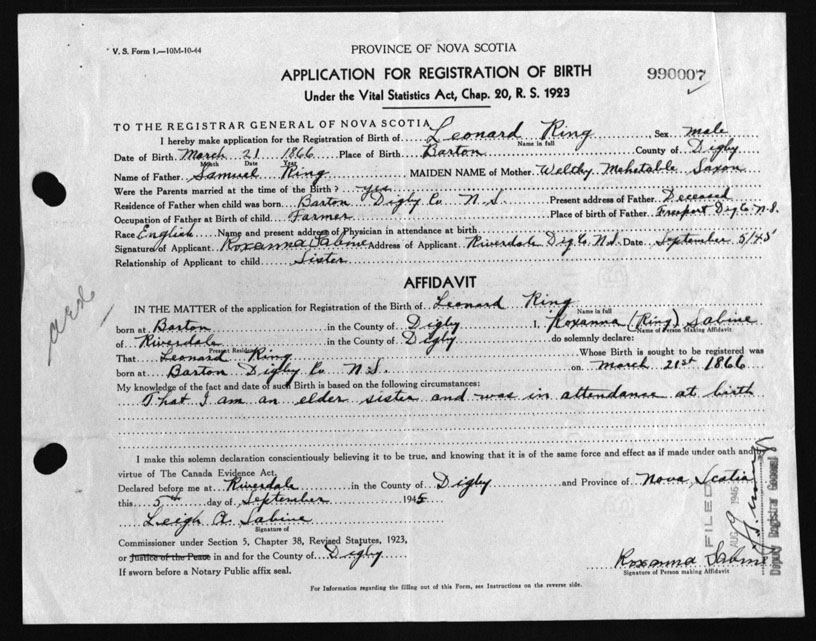 V. S. Form 1.—10M-10-44
PROVINCE OF NOVA SCOTIA
APPLICATION FOR REGISTRATION OF BIRTH
990007
Under the Vital Statistics Act, Chap. 20, R. S. 1923
TO THE REGISTRAR GENERAL OF NOVA SCOTIA
I hereby make application for the Registration of Birth of Leonard King, Sex male
Name in full
Date of Birth March 21 1866 Place of Birth Barton County of Digby
Month Date Year
Name of Father Samuel King MAIDEN NAME of Mother Welthy Mehetable Saxon
Were the Parents married at the time of the Birth? yes
Residence of Father when child was born Barton Digby Co. N.S. Present address of Father Deceased
Occupation of Father at Birth of child Farmer Place of birth of Father Freeport Dig Co N.S.
Race English Name and present address of Physician in attendance at birth
Signature of Applicant Roxanna Sabine Address of Applicant Riverdale Dig Co N.S. Date September 5/45
Relationship of Applicant to child Sister
AFFIDAVIT
IN THE MATTER of the application for Registration of the Birth of Leonard King
Name in full
born at Barton in the County of Digby I, Roxanna (King) Sabine
Name of Person Making Affidavit
of Riverdale in the County of Digby do solemnly declare:
Present Residence
That Leonard King Whose Birth is sought to be registered was
born at Barton Digby Co N.S. on March 21st 1866
My knowledge of the fact and date of such Birth is based on the following circumstances:
That I am an elder sister and was in attendance at birth
I make this solemn declaration conscientiously believing it to be true, and knowing that it is of the same force and effect as if made under oath and by
virtue of The Canada Evidence Act.
Declared before me at Riverdale in the County of Digby and Province of Nova Scotia
this 5th day of September 1945
Leigh A. Sabine
Signature of
Commissioner under Section 5, Chapter 38, Revised Statutes, 1923,
or Justice of the Peace in and for the County of Digby
If sworn before a Notary Public affix seal.
Roxanna Sabine
Signature of Person making Affidavit
FILED
AUG 9 1946
Deputy Registrar General
For Information regarding the filling out of this Form, see Instructions on the reverse side.